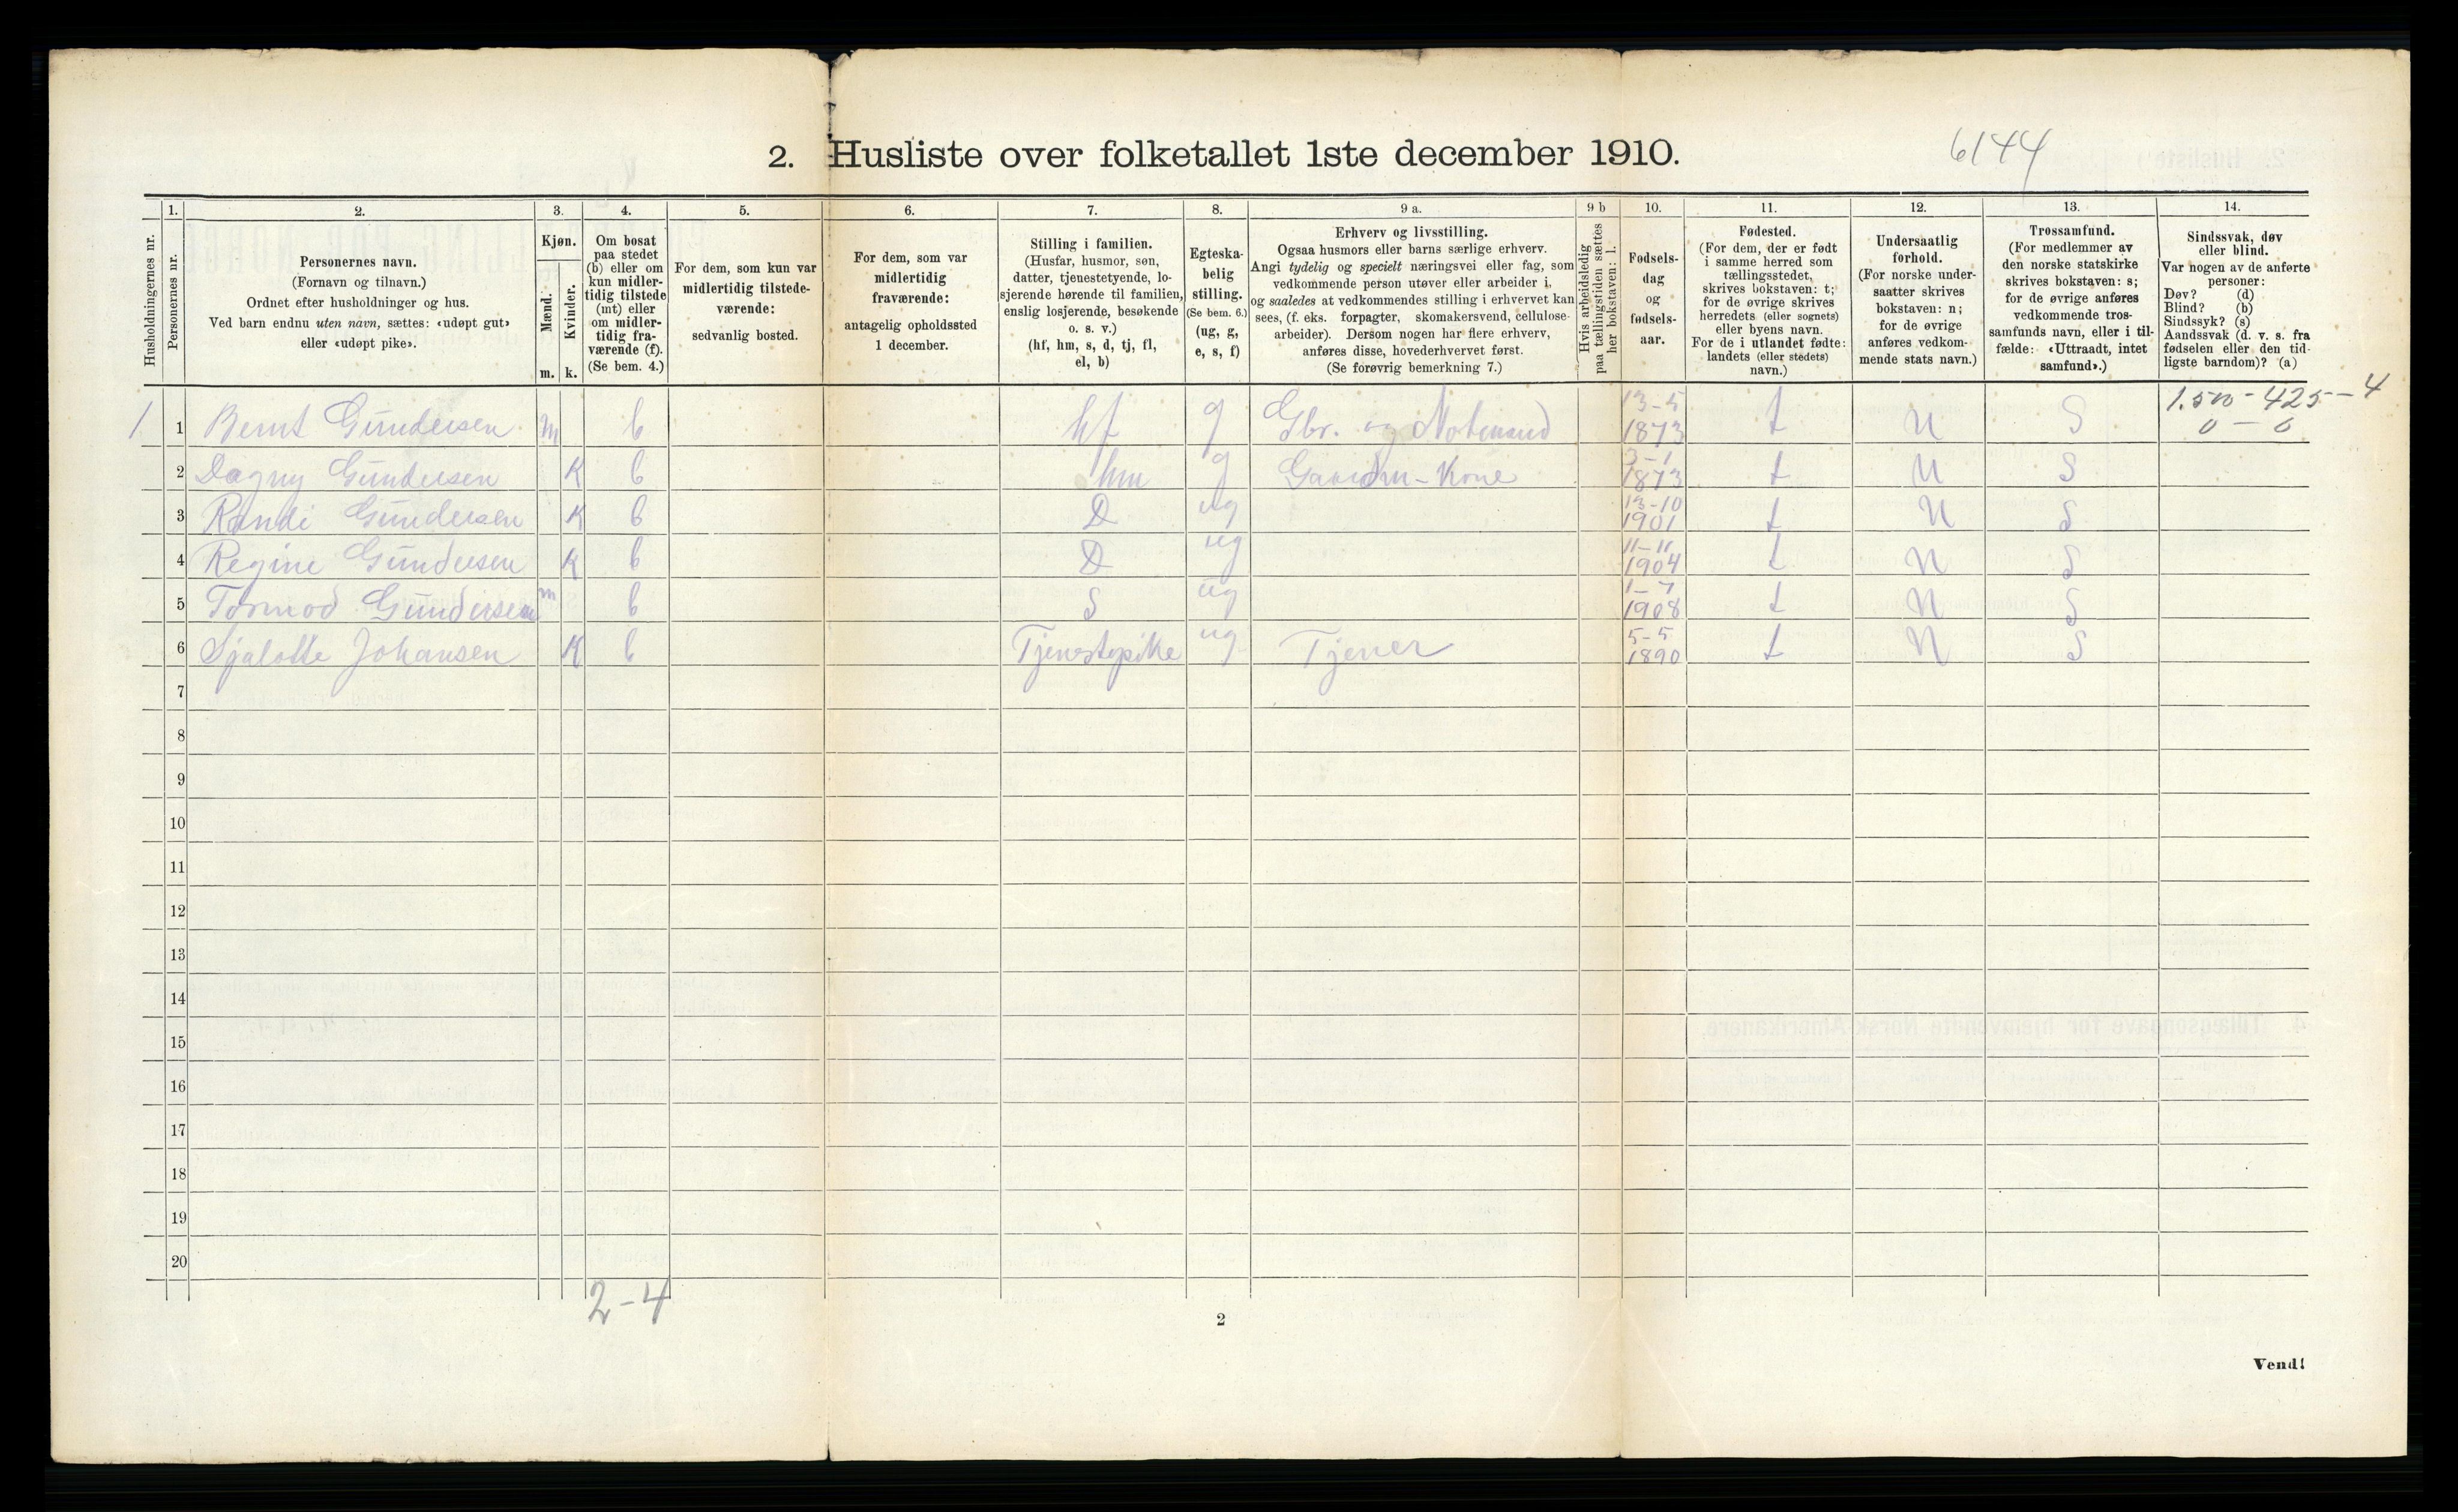 2. Husliste over folketallet 1ste december 1910.
6144
Husholdningernes nr.
1.
Personernes nr.
2.
Personernes navn.
(Fornavn og tilnavn.)
Ordnet efter husholdninger og hus.
Ved barn endnu uten navn, sættes: «udøpt gut»
eller «udøpt pike».
3.
Kjøn.
Mænd.
Kvinder.
m. k.
4.
Om bosat
paa stedet
(b) eller om
kun midler-
tidig tilstede
(mt) eller
om midler-
tidig fra-
værende (f).
(Se bem. 4.)
5.
For dem, som kun var
midlertidig tilstede-
værende:
sedvanlig bosted.
6.
For dem, som var
midlertidig
fraværende:
antagelig opholdssted
1 december.
7.
Stilling i familien.
(Husfar, husmor, søn,
datter, tjenestetyende, lo-
sjerende hørende til familien,
enslig losjerende, besøkende
o. s. v.)
(hf, hm, s, d, tj, fl,
el, b)
8.
Egteska-
belig
stilling.
(Se bem. 6.)
(ug, g,
e, s, f)
9 a.
Erhverv og livsstilling.
Ogsaa husmors eller barns særlige erhverv.
Angi tydelig og specielt næringsvei eller fag, som
vedkommende person utøver eller arbeider i,
og saaledes at vedkommendes stilling i erhvervet kan
sees, (f. eks. forpagter, skomakersvend, cellulose-
arbeider). Dersom nogen har flere erhverv,
anføres disse, hovederhvervet først.
(Se forøvrig bemerkning 7.)
9 b
Hvis arbeidsledig
paa tællingstiden sættes
her bokstaven: l.
10.
Fødsels-
dag
og
fødsels-
aar.
11.
Fødested.
(For dem, der er født
i samme herred som
tællingsstedet,
skrives bokstaven: t;
for de øvrige skrives
herredets (eller sognets)
eller byens navn.
For de i utlandet fødte:
landets (eller stedets)
navn.)
12.
Undersaatlig
forhold.
(For norske under-
saatter skrives
bokstaven: n;
for de øvrige
anføres vedkom-
mende stats navn.)
13.
Trossamfund.
(For medlemmer av
den norske statskirke
skrives bokstaven: s;
for de øvrige anføres
vedkommende tros-
samfunds navn, eller i til-
fælde: «Uttraadt, intet
samfund».)
14.
Sindssvak, døv
eller blind.
Var nogen av de anførte
personer:
Døv? (d)
Blind? (b)
Sindssyk? (s)
Aandssvak (d. v. s. fra
fødselen eller den tid-
ligste barndom)? (a)
1 1 Bernt Gundersen m b hf g Gbr. og 13-5 1873 t N S 1.500-425-4 0-0
2 Dagny Gundersen K b hm g 3-1 1873 t N S
3 Randi Gundersen K b D ug 13-10 1901 t N S
4 Regine Gundersen K b D ug 11-11 1904 t N S
5 Tormod Gundersen m b S ug 1-7 1908 t N S
6 Sjalotte Johansen K b Tjenestepike ug Tjener 5-5 1890 t N S
7
8
9
10
11
12
13
14
15
16
17
18
19
20
2-4
2
Vend!